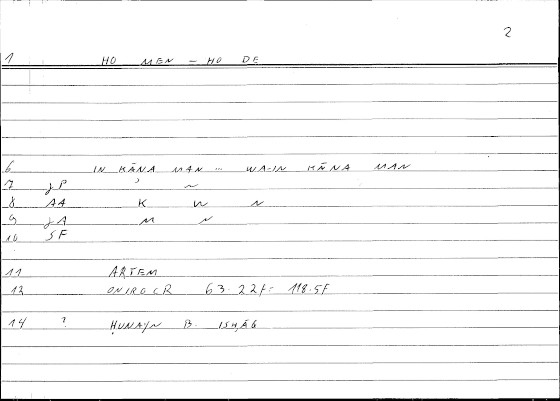 2
1 HO MEN – HO DE
6 IN KĀNA MAN ... WA-IN KĀNA MAN
7 JP ʾ N
8 AA K W N
9 JA M N
10 SF
11 ARTEM
12 ONIROCR 63.22F= 118.5F
14 ? ḤUNAYN B. ISḤĀQ